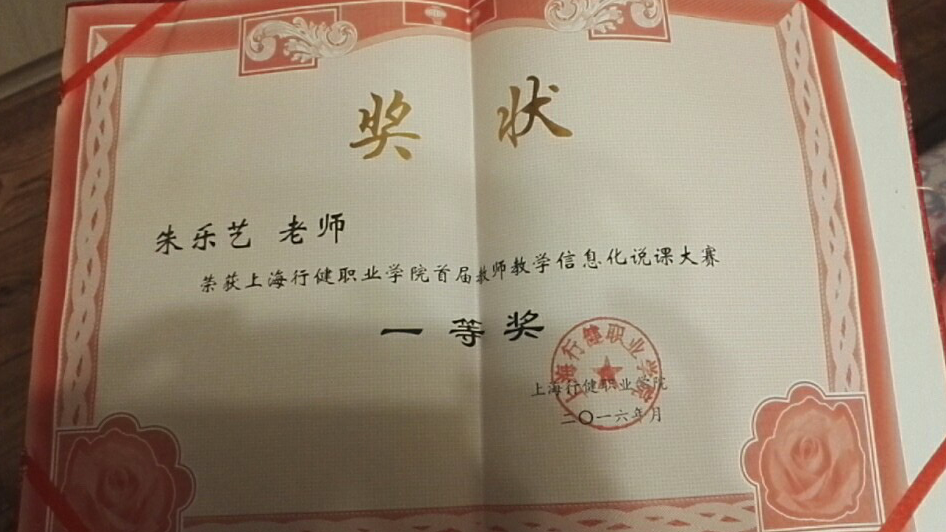 奖状
朱乐艺 老师
荣获上海行健职业学院首届教师教学信息化说课大赛
一等奖
上海行健职业学院
二〇一六年月
上海行健职业学院